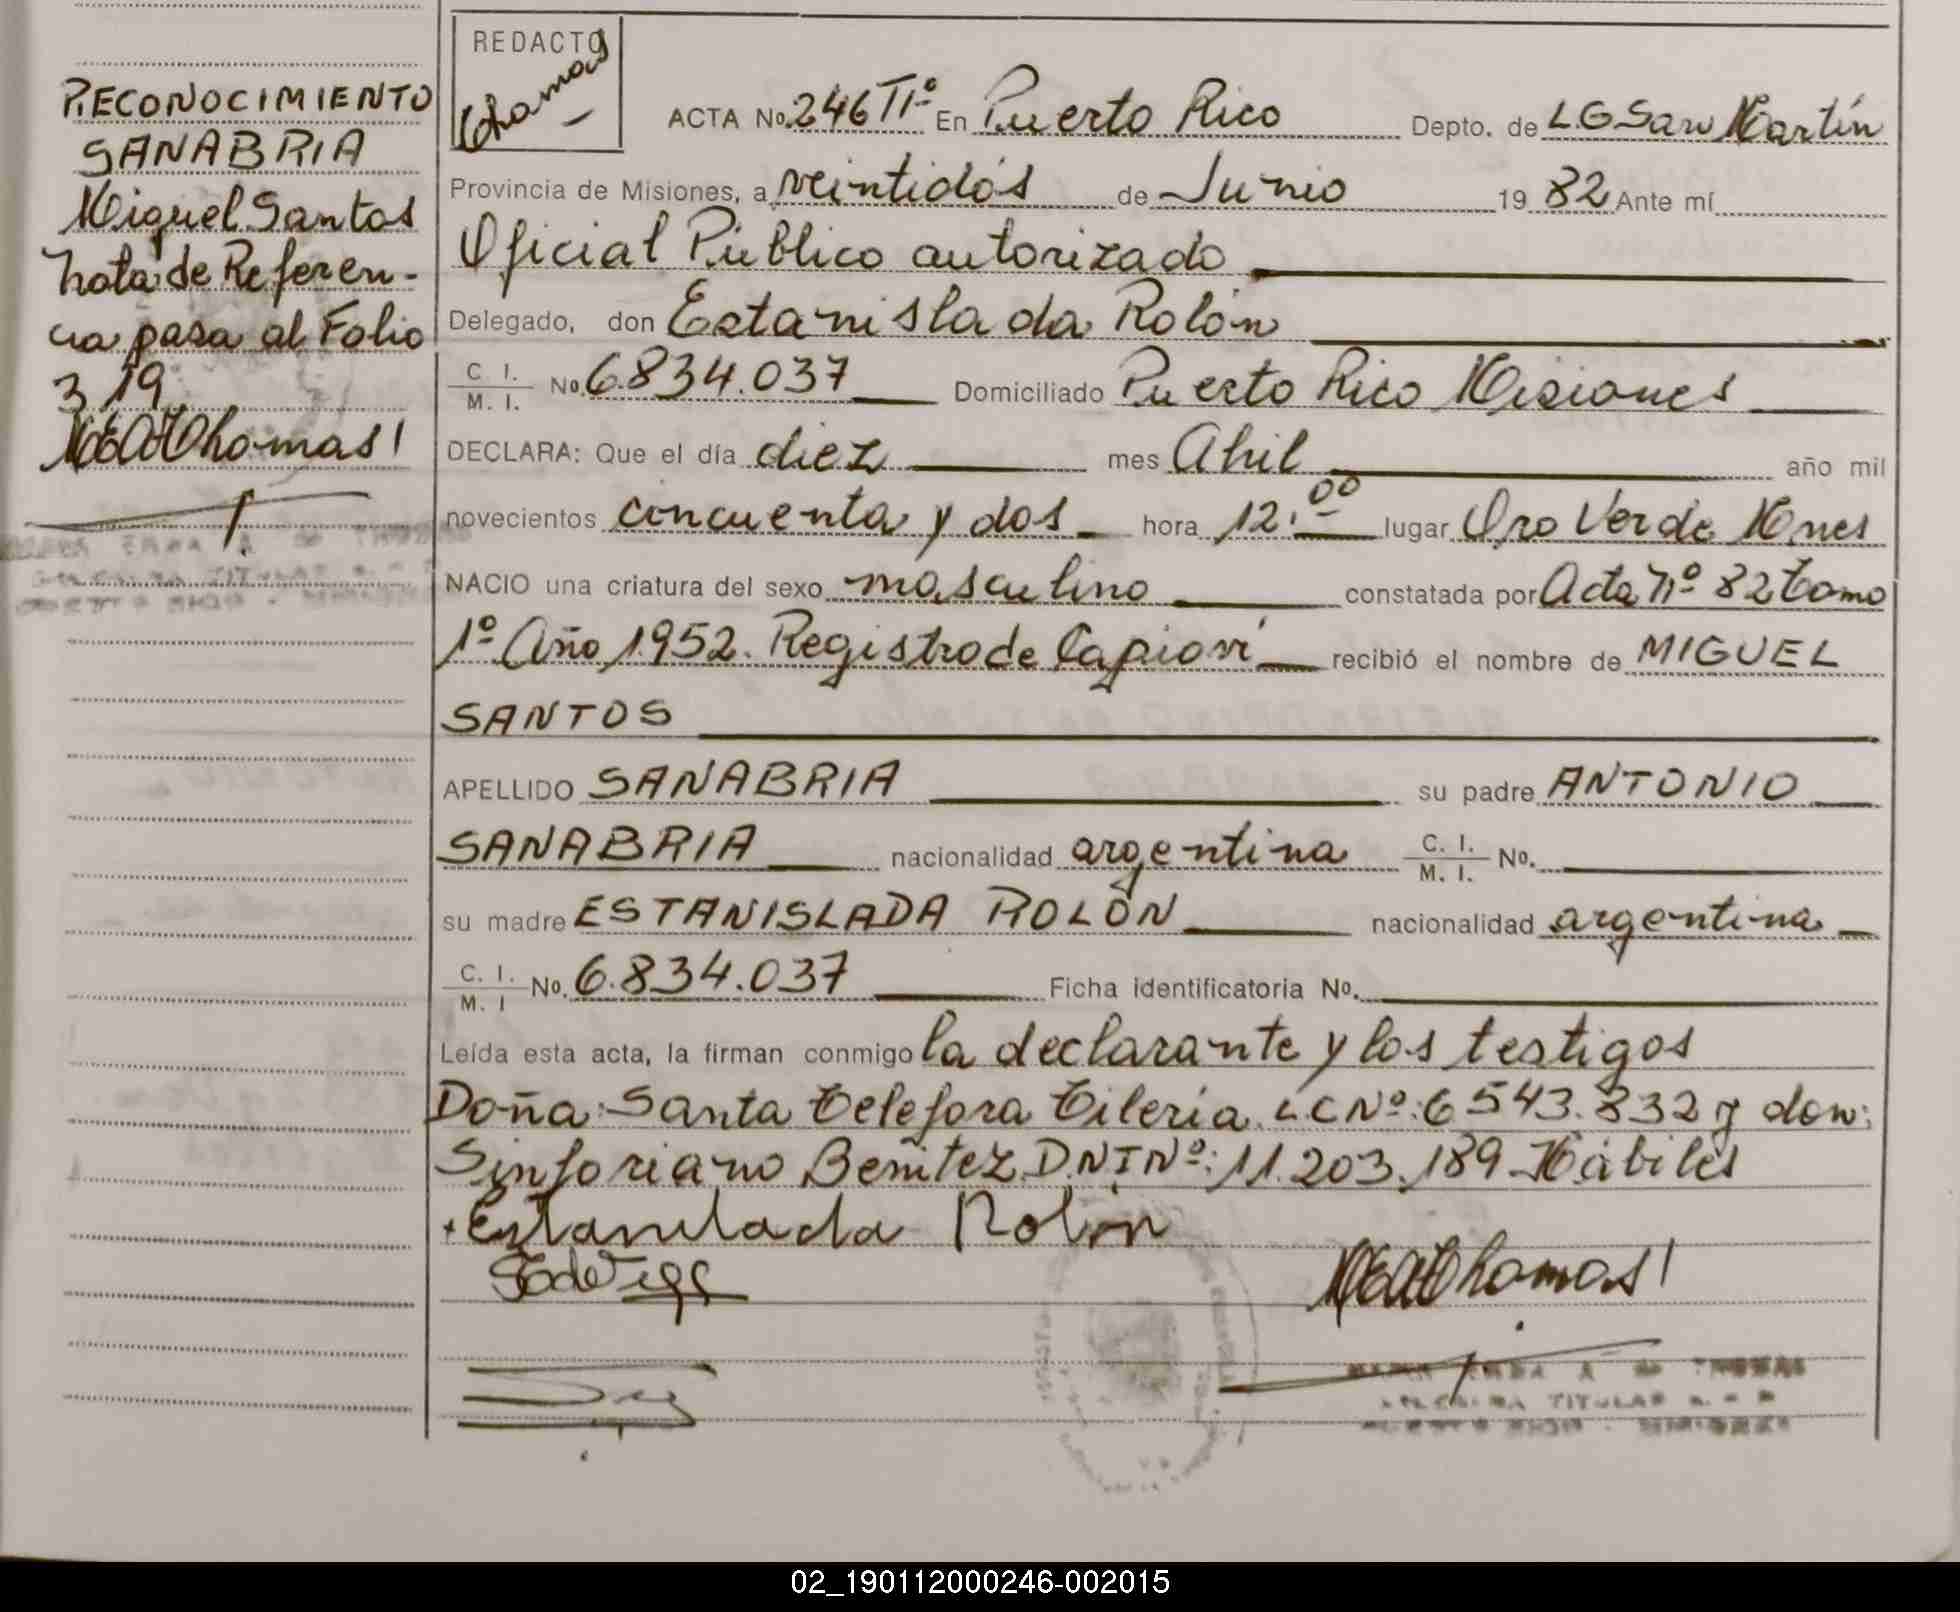 RECONOCIMIENTO
SANABRIA
Miguel Santos
Nota de Referen-
cia pasa al Folio
319
REDACTO
Thomas
ACTA No. 246 Tº En Puerto Rico Depto. de L.G San Martín
Provincia de Misiones, a veintidós de Junio 19 82 Ante mí
Oficial Público autorizado
Delegado, don Estanislada Rolón
C. I.
M. I. No. 6.834.037 Domiciliado Puerto Rico Misiones
DECLARA: Que el día diez mes Abril año mil
novecientos cincuenta y dos hora 12.00 lugar Oro Verde Mnes
NACIO una criatura del sexo masculino constatada por Acta Nº 82 tomo
1º Año 1952. Registro de Capioví recibió el nombre de MIGUEL
SANTOS
APELLIDO SANABRIA su padre ANTONIO
SANABRIA nacionalidad argentina C. I.
M. I. No.
su madre ESTANISLADA ROLÓN nacionalidad argentina
C. I.
M. I No. 6.834.037 Ficha identificatoria No.
Leída esta acta, la firman conmigo la declarante y los testigos
Doña: Santa Telefora Tileria L.C Nº: 6543.832 y don:
Sinforiano Benitez D.N.I Nº: 11.203.189 Hábiles
Estanislada Rolon
TITULAR
02_190112000246-002015